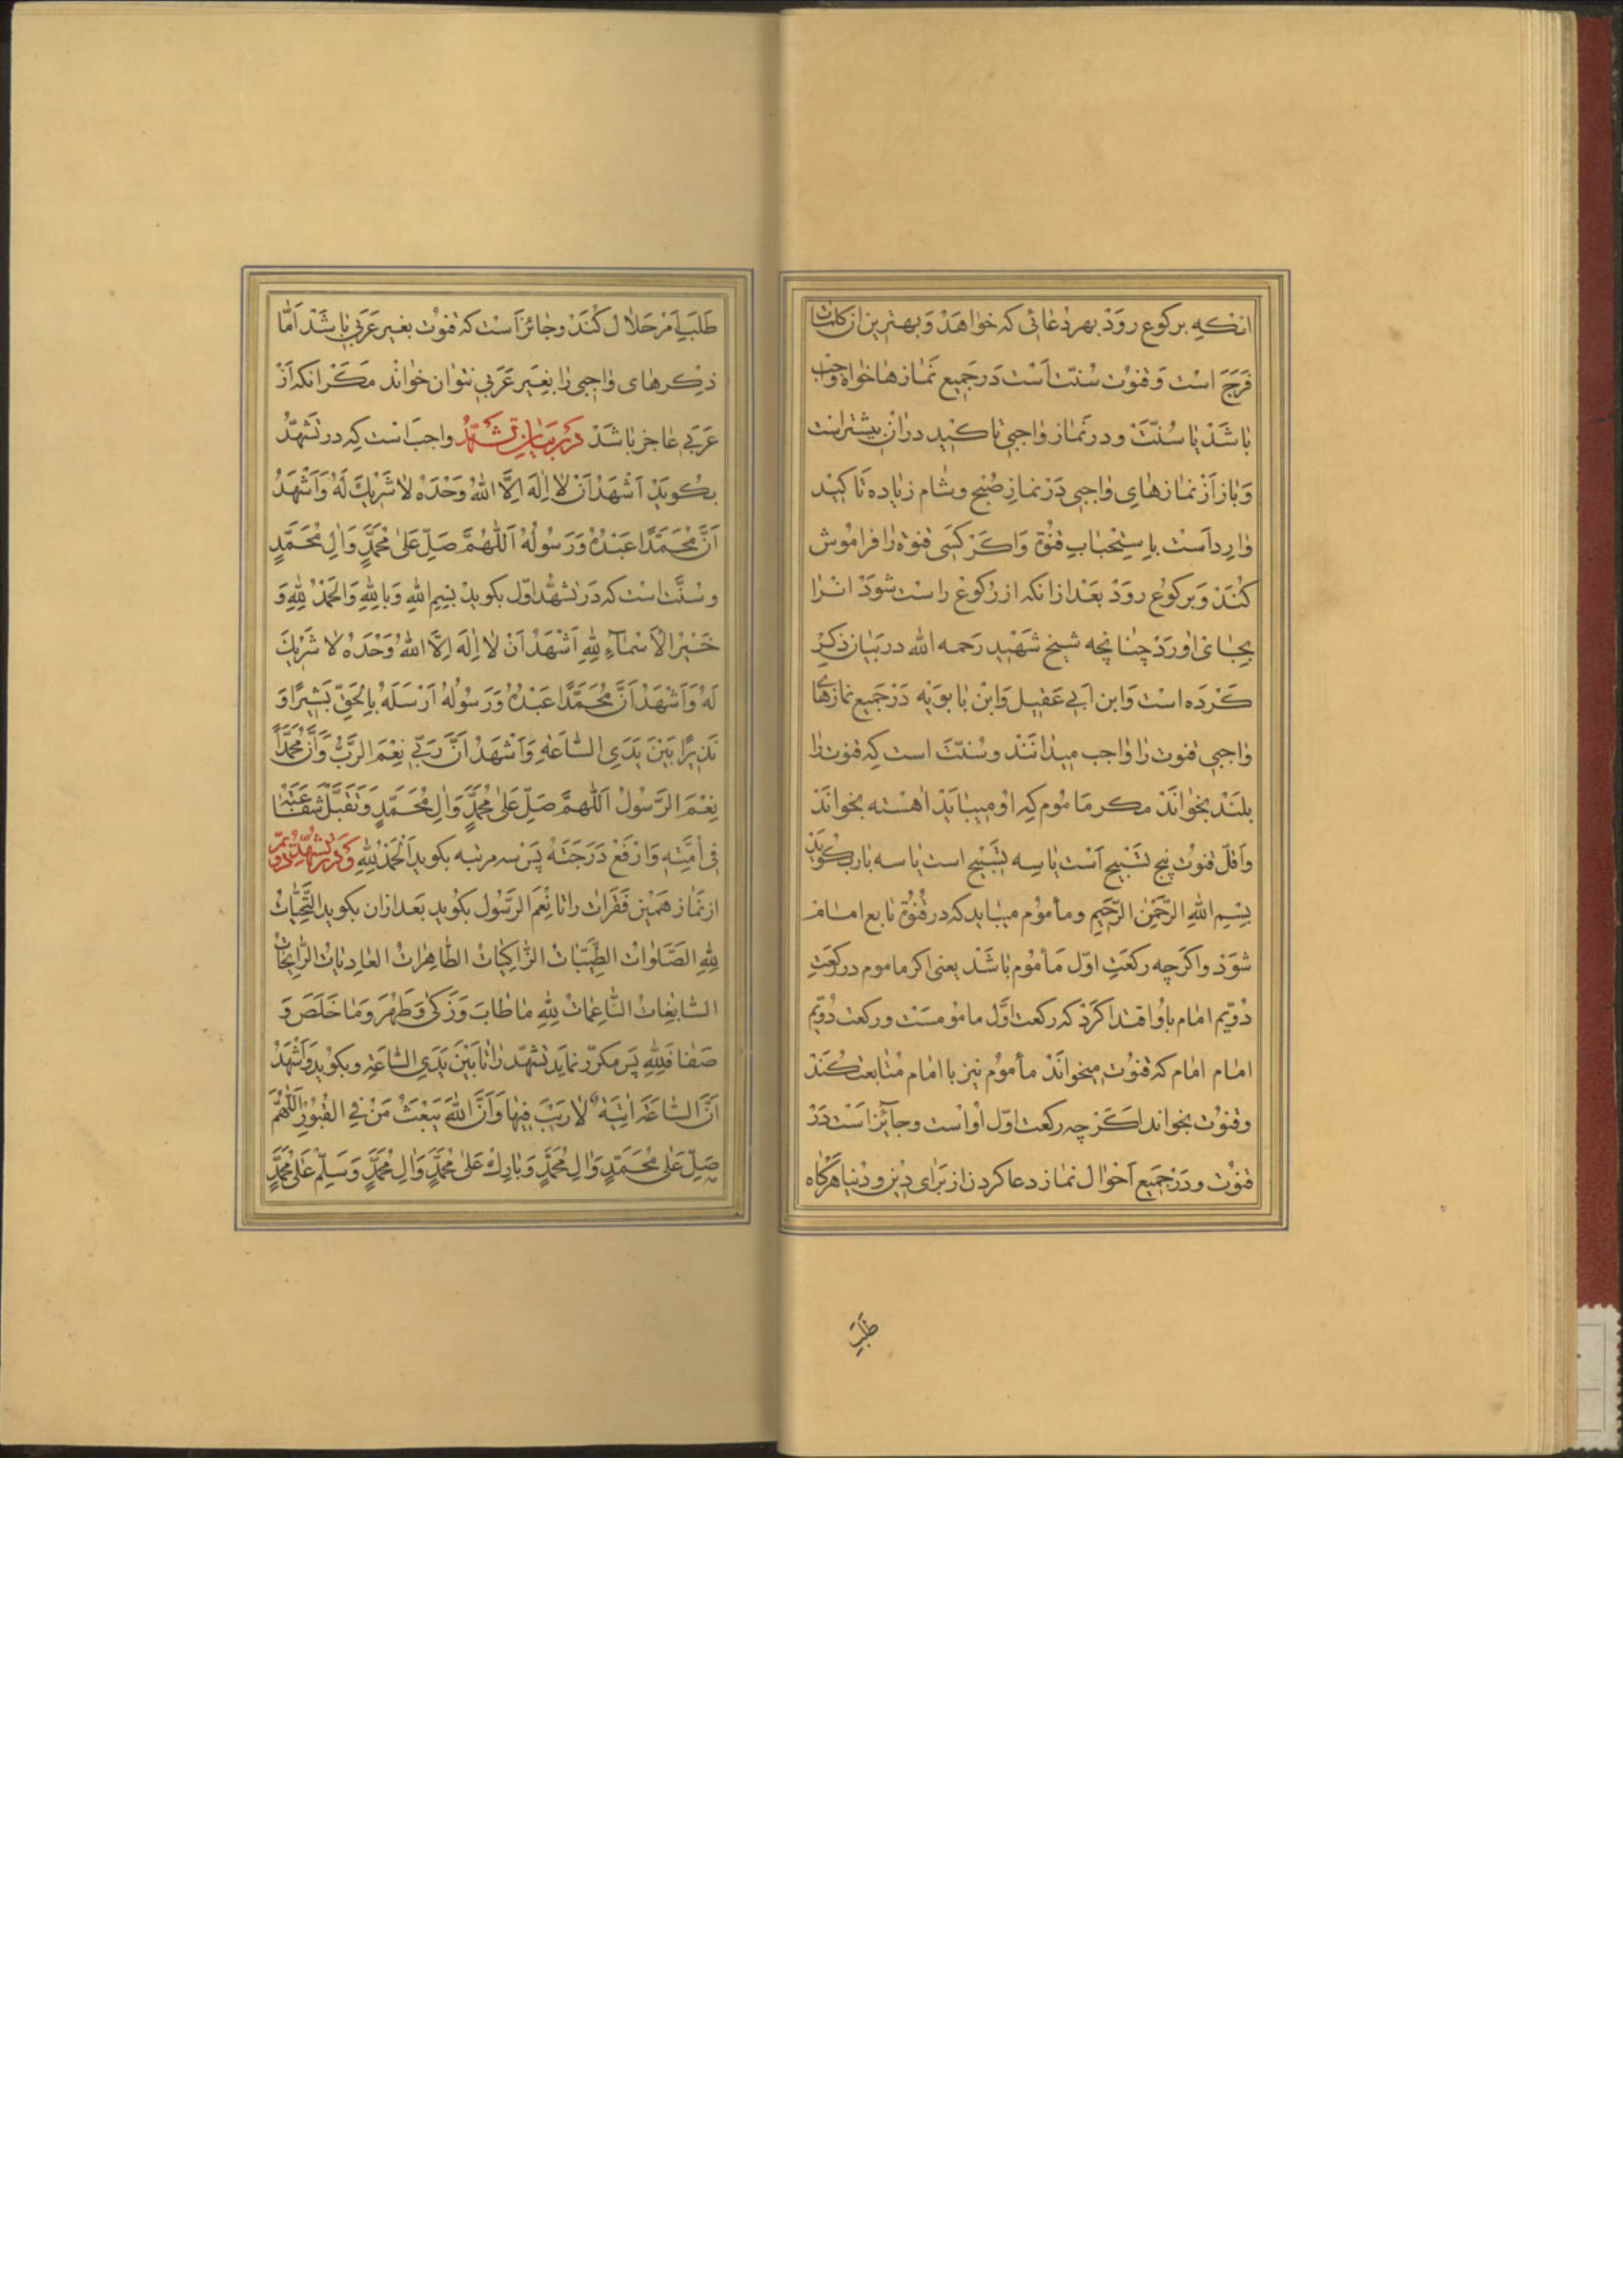 انکه برکوع رود بهر دعائی که خواهد و بهترین از کلمات
فرج است و قنوت سنت است در جمیع نمازها خواه واجب
باشد یا سنت و در نماز واجبی تاکید در ان بیشتر است
و باز از نمازهای واجبی در نماز صبح و شام زیاده تاکید
وارد است باستحباب قنوة و اکر کسی قنوة را فراموش
کند و برکوع رود بعد از انکه از رکوع راست شود انرا
بجای اورد چنانچه شیخ شهید رحمه الله در بیان ذکر
کرده است و ابن ابی عقیل و ابن بابویه در جمیع نمازهای
واجبی قنوت را واجب میدانند و سنت است که قنوت را
بلند بخواند مکر ماموم که او میباید اهسته بخواند
و اقل قنوت پنج تسبیح است یا سه تسبیح است یا سه بار بکوید
بسم الله الرحمن الرحیم و مأموم میباید که در قنوة تابع امام
شود و اکرچه رکعت اول مأموم باشد یعنی اکر ماموم در رکعت
دویم امام باو اقتدا کرد که رکعت اول مامومست و رکعت دویم
امام امام که قنوت میخواند مأموم نیز با امام متابعت کند
و قنوت بخواند اکرچه رکعت اول اواست و جائز است در
قنوت و در جمیع احوال نماز دعا کردن از برای دین و دنیا هرکاه
طلب
طلب امر حلال کند و جائز است که قنوت بغیر عربی باشد اما
ذکرهای واجبی را بغیر عربی نتوان خواند مکر انکه از
عربی عاجز باشد در بیان تشهد واجب است که در تشهد
بکوید اشهد ان لا اله الا الله وحده لا شریك له و اشهد
ان محمدا عبده و رسوله اللهم صل علی محمد و ال محمد
و سنت است که در تشهد اول بکوید بسم الله و بالله و الحمد لله و
خیر الاسماء لله اشهد ان لا اله الا الله وحده لا شریك
له و اشهد ان محمدا عبده و رسوله ارسله بالحق بشیرا و
نذیرا بین یدی الساعة و اشهد ان ربی نعم الرب و ان محمدا
نعم الرسول اللهم صل علی محمد و ال محمد و تقبل شفاعته
فی امته و ارفع درجته پس سه مرتبه بکوید الحمد لله و در تشهد دویم
از نماز همین فقرات را تا نعم الرسول بکوید بعد ازان بکوید التحیات
لله الصلوات الطیبات الزاکیات الطاهرات الغادیات الرایحات
السابغات الناعمات لله ما طاب و زکی و طهر و ما خلص و
صفا فلله پس مکرر نماید تشهد را تا بین یدی الساعة و بکوید و اشهد
ان الساعة اتیة لا ریب فیها و ان الله یبعث من فی القبور اللهم
صل علی محمد و ال محمد و بارك علی محمد و ال محمد و سلم علی محمد